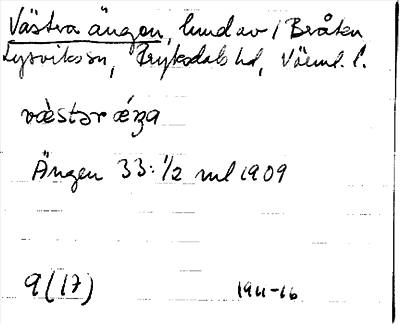 Västra ängen, lund av / Bråten
Lysviks sn, Fryksdals hd, Värml. l.
væ̀stər ǽŋa
Ängen 33: 1/2 ml 1909
9(17) 1911-16